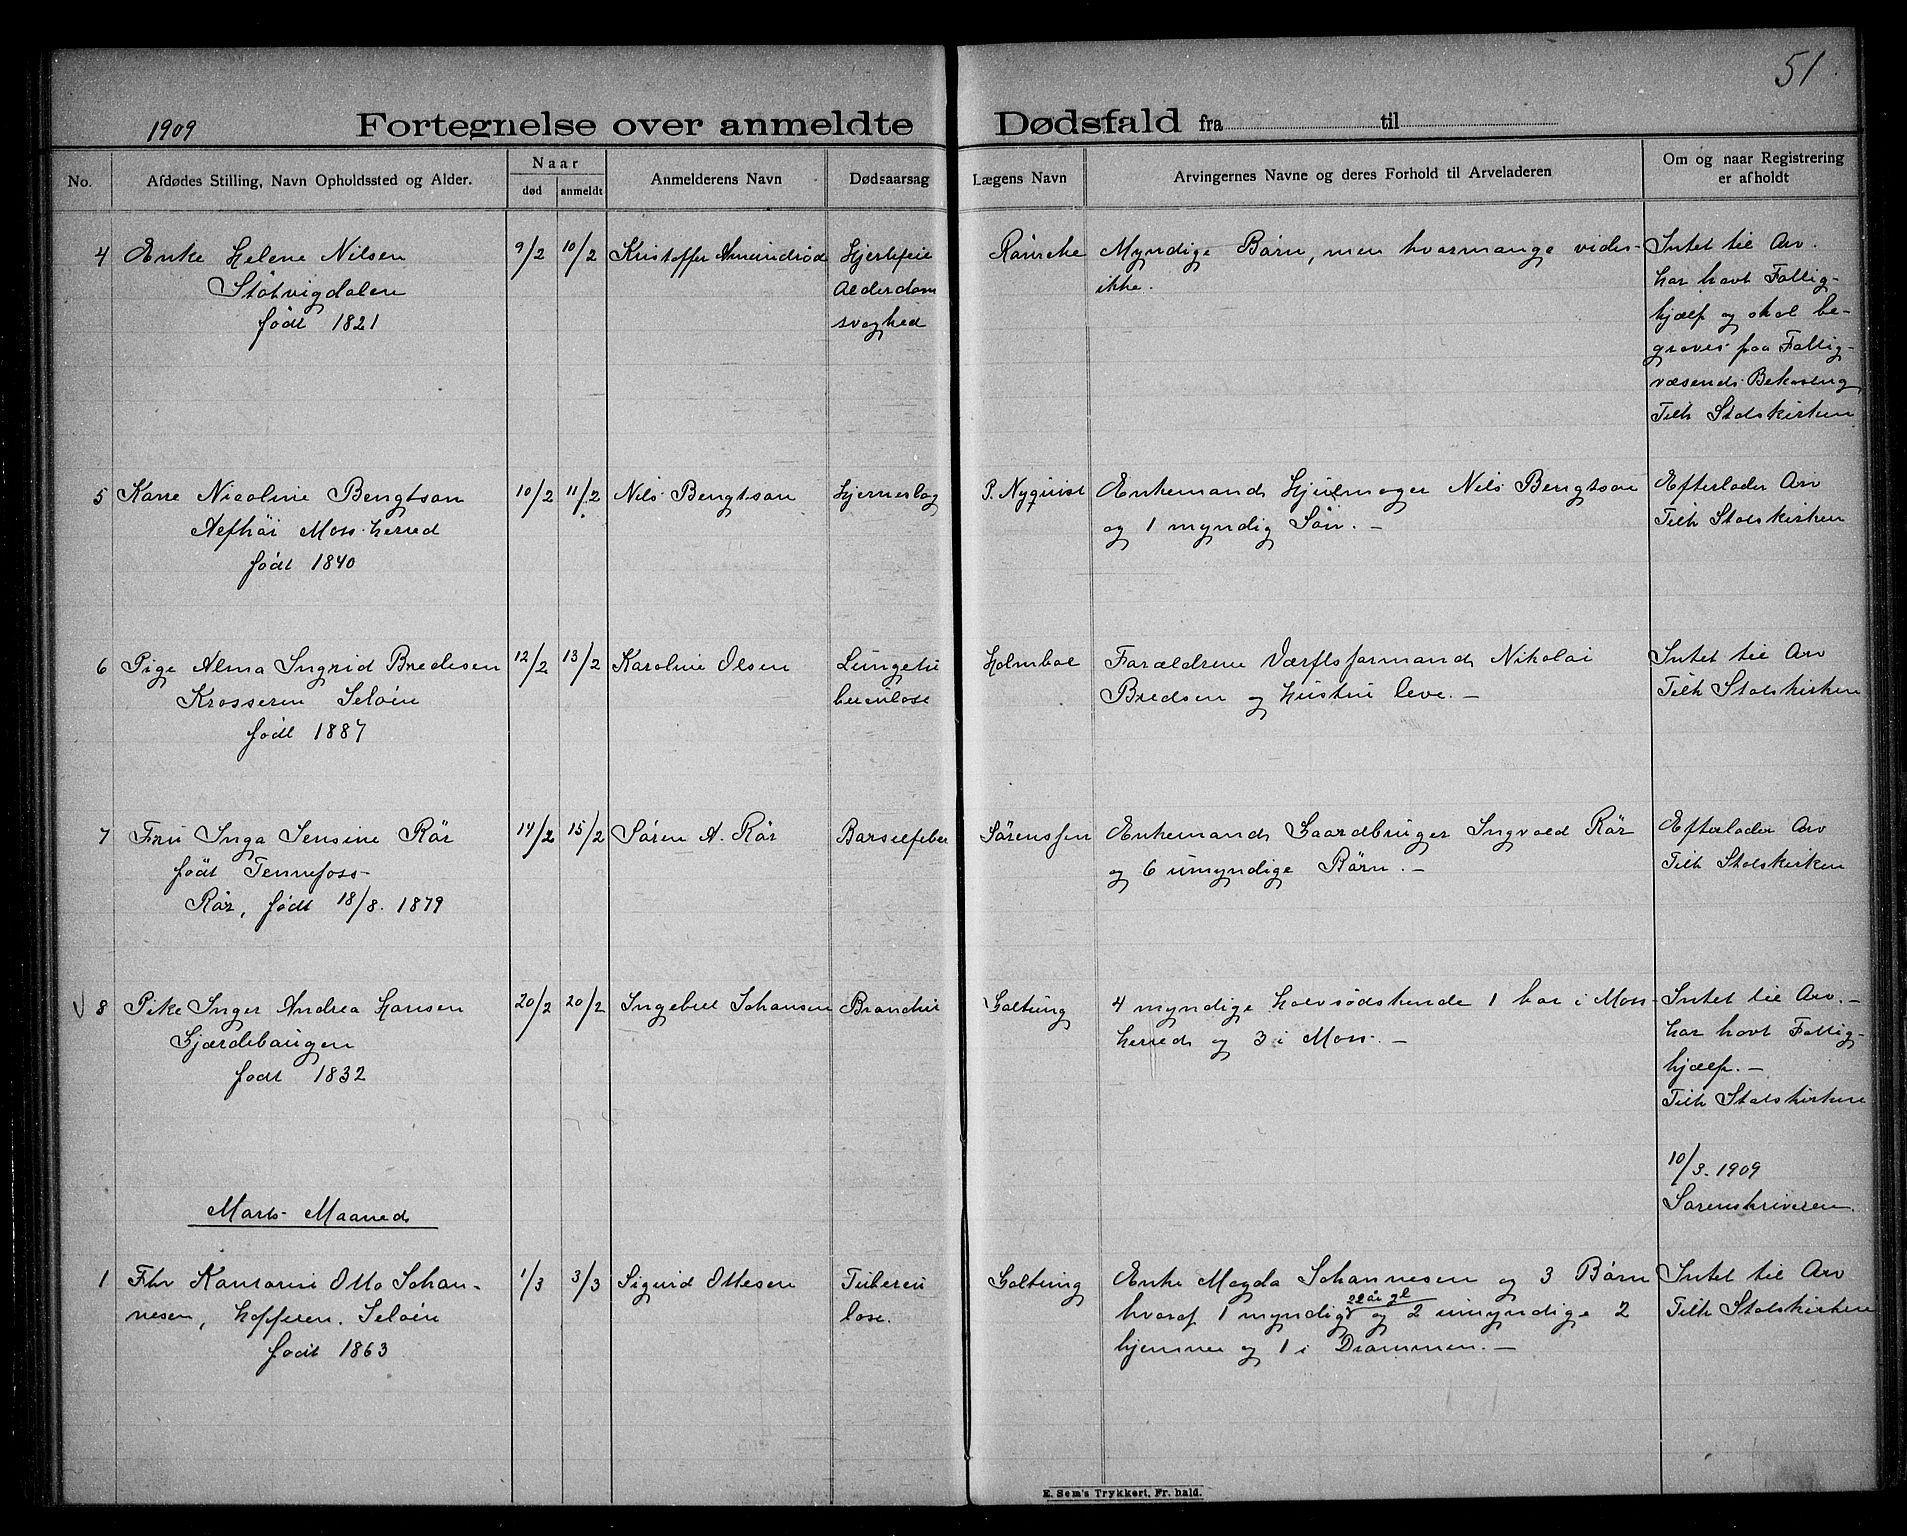 51
1909
Fortegnelse over anmeldte Dødsfald fra til
No.
Afdødes Stilling, Navn Opholdssted og Alder.
Naar
død
anmeldt
Anmelderens Navn
Dødsaarsag
Lægens Navn
Arvingernes Navne og deres Forhold til Arveladeren
Om og naar Registrering
er afholdt
4
Enke Helene Nilsen
Støtvigdalen
født 1821
9/2
10/2
Kristoffer Amundrød
Hjertefeil
Alderdom
svaghed
Myndige Børn, men hvormange vides
ikke.
Intet til Arv.
har havt Fattig-
hjælp og skal be-
graves paa Fattig-
væsends Bekostng
Tilh Statskirken
5
Karre Nicoline Bengtson
Moss herred
født 1840
10/2
11/2
Nils Bengtson
Hjerneslag
P. Nyquist
Enkemand Hjulmager Nils Bengtson
og 1 myndig Søn. —
Efterlader Arv
Tilh Statskirken
6
Pige Alma Ingrid Bredesen
Krosseren Jeløen
født 1887
12/2
13/2
Karoline Olsen
Lungetu
berculose
Holmboe
Forældrene Værftsformand Nikolai
Bredsen og Hustru leve. —
Intet til Arv
Tilh Statskirken
7
Fru Inga Jensine Rør
født Tennefoss
Rør, født 18/8. 1879
14/2
15/2
Søren A. Rør
Barselfeber
Sørenssen
Enkemand Gaardbruger Ingvald Rør
og 6 umyndige Børn. —
Efterlader Arv
Tilh Statskirken
8
Pike Inger Andrea Hansen
Gjærdebaugen
født 1832
20/2
20/2
Ingebret Johansen
Galtung
4 myndige halvsødskende 1 bor i Moss
herred og 3 i Moss. —
Intet til Arv. —
har havt Fattig-
hjælp. —
Tilh Statskirken
10/3. 1909
Sorenskriveren.
Marts Maaned
1
Fhv Kantorist Otto Johan-
nesen, Hopperen. Jeløen
født 1863
1/3
3/3
Sigurd Ottesen
Tubercu
lose.
Galtung
Enke Magda Johannesen og 3 Børn
hvoraf 1 myndig 22 år gl og 2 umyndige 2
hjemme og 1 i Drammen. —
Intet til Arv
Tilh Statskirken
E. Sem's Trykkeri, Fr.hald.